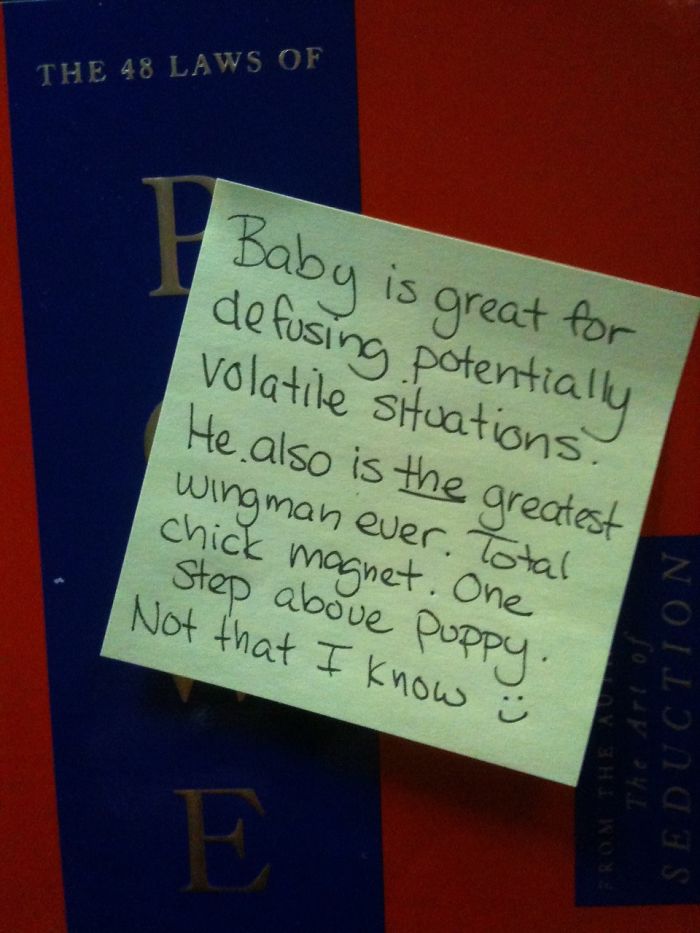 THE 48 LAWS OF
P
Baby is great for
defusing potentially
volatile situations.
He also is the greatest
wingman ever. Total
chick magnet. One
step above puppy.
Not that I know :)
W
E
FROM THE AUT
The Art of
SEDUCTION